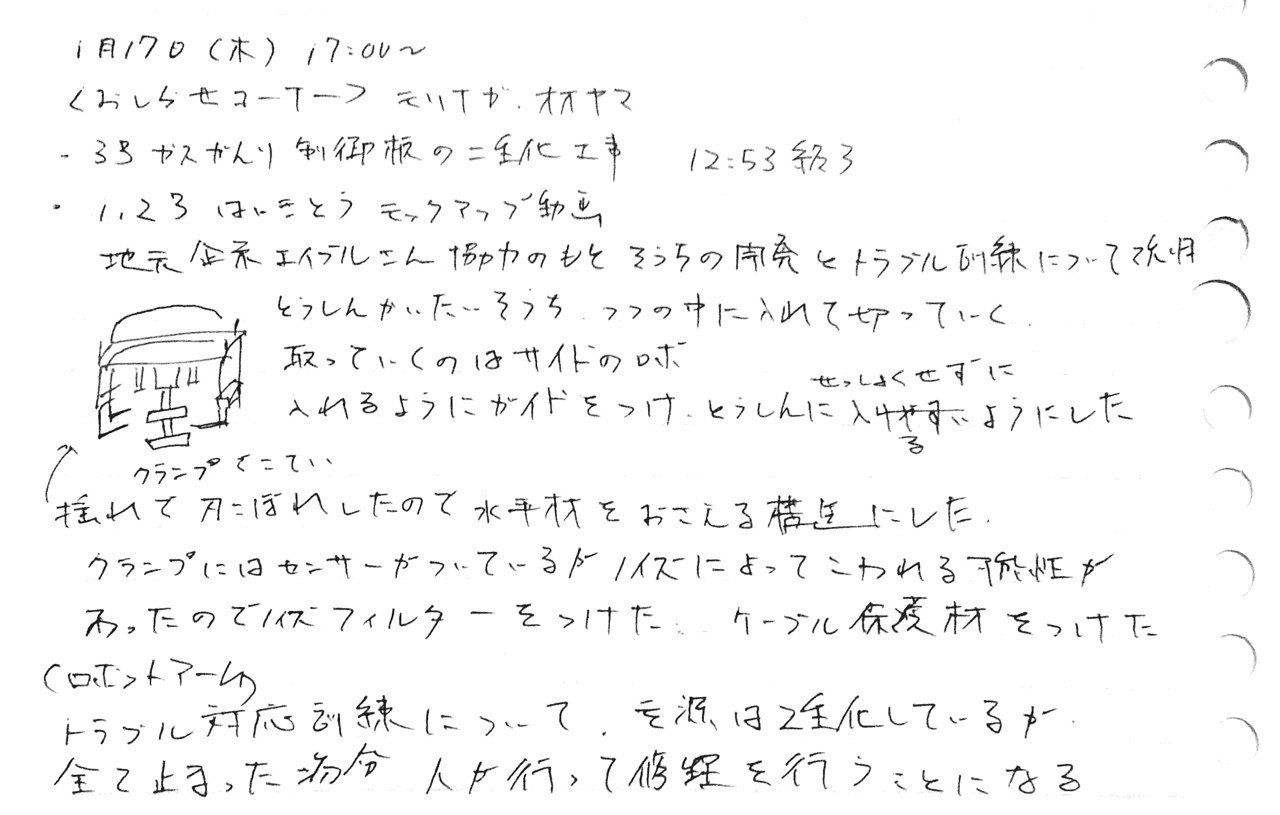 1月17日（木） 17:00〜
＜おしらせコーナー＞ モリナガ、オオヤマ
・3号ガスかんり制御板の二重化工事 12:53終了
・1.2号 はいきとう モックアップ動画
地元企業エイブルさん協力のもと そうちの開発とトラブル訓練について説明
とうしんかいたいそうち つつの中に入れて切っていく.
取っていくのはサイドのロボ
せっしょくせずに
入れるようにガイドをつけ、とうしんに入りやすいようにした
る
クランプでこてい
揺れで刃こぼれしたので水平材をおさえる構造にした.
クランプにはセンサーがついているがノイズによってこわれる可能性が
あったのでノイズフィルターをつけた. ケーブル保護材をつけた
（ロボットアームの
トラブル対応訓練について. 電源は2重化しているが.
全て止まった場合 人が行って修理を行うことになる